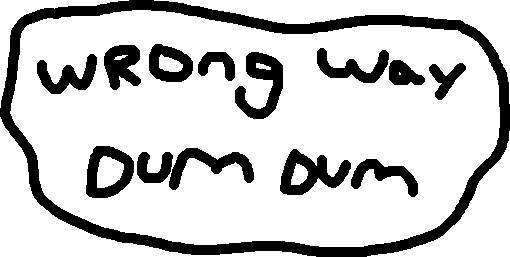 WRONg way
DUM DUM